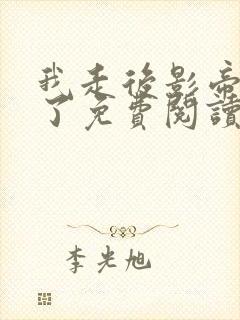 我走後影帝
了免費閱讀
李光旭